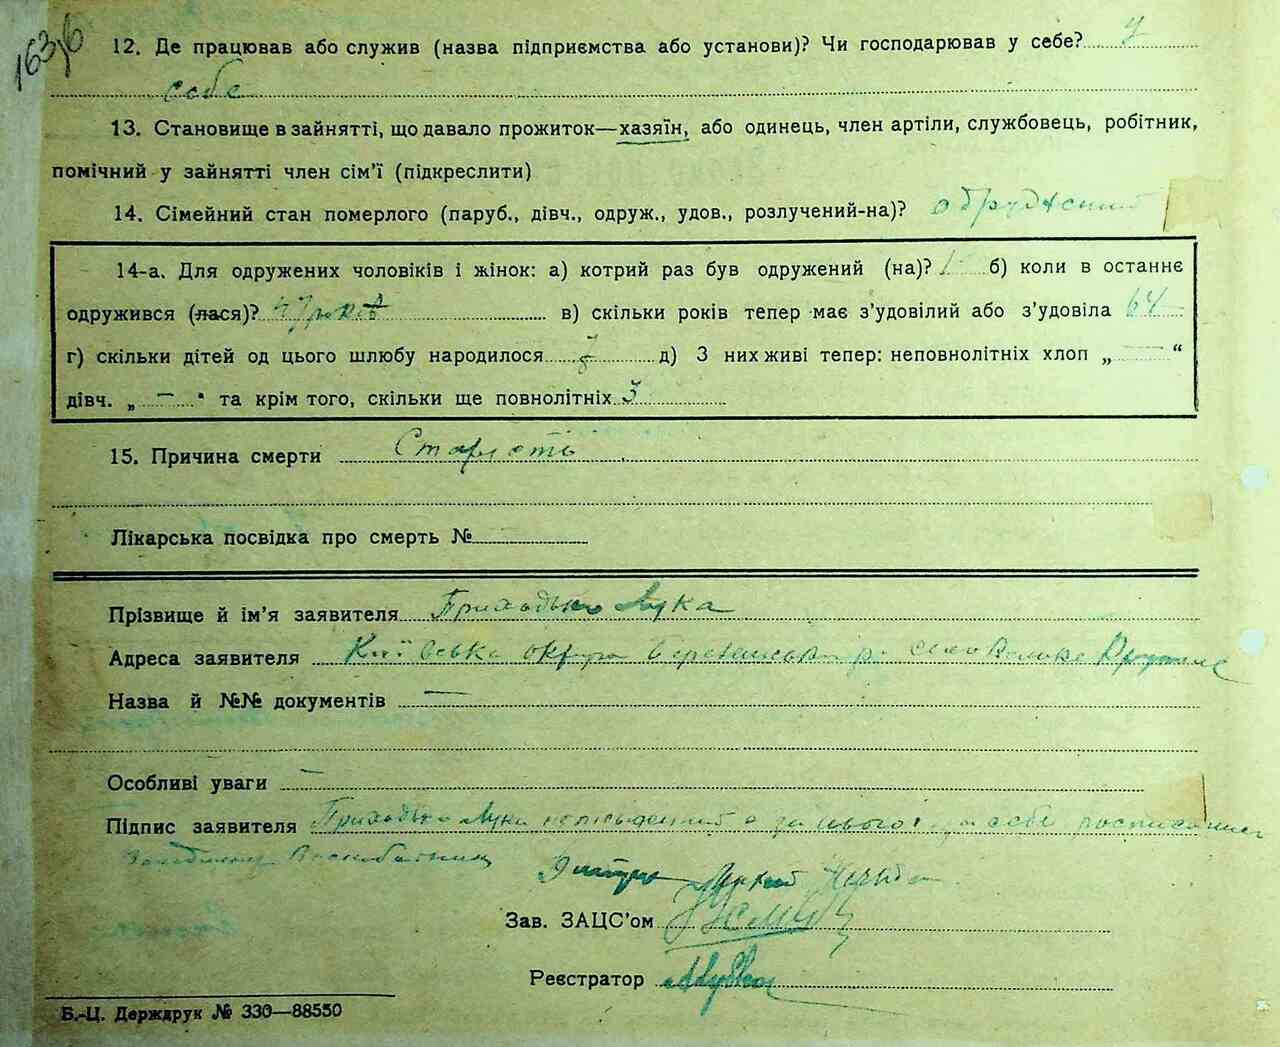 163б
12. Де працював або служив (назва підприємства або установи)? Чи господарював у себе? у
себе
13. Становище в зайнятті, що давало прожиток—хазяїн, або одинець, член артіли, службовець, робітник,
помічний у зайнятті член сім'ї (підкреслити)
14. Сімейний стан померлого (паруб., дівч., одруж., удов., розлучений-на)?
14-а. Для одружених чоловіків і жінок: а) котрий раз був одружений (на)? 1 б) коли в останнє
одружився (лася)? 47 років в) скільки років тепер має з'удовілий або з'удовіла 64
г) скільки дітей од цього шлюбу народилося д) З них живі тепер: неповнолітніх хлоп „ — “
дівч. „ — " та крім того, скільки ще повнолітніх 3
15. Причина смерти Старість
Лікарська посвідка про смерть №
Прізвище й ім'я заявителя Приходько Лука
Адреса заявителя Київська округа село Велике
Назва й №№ документів —
Особливі уваги —
Підпис заявителя Приходько Лука а за нього і за себе
Зав. ЗАЦС'ом
Реєстратор
Б.-Ц. Держдрук № 330—88550